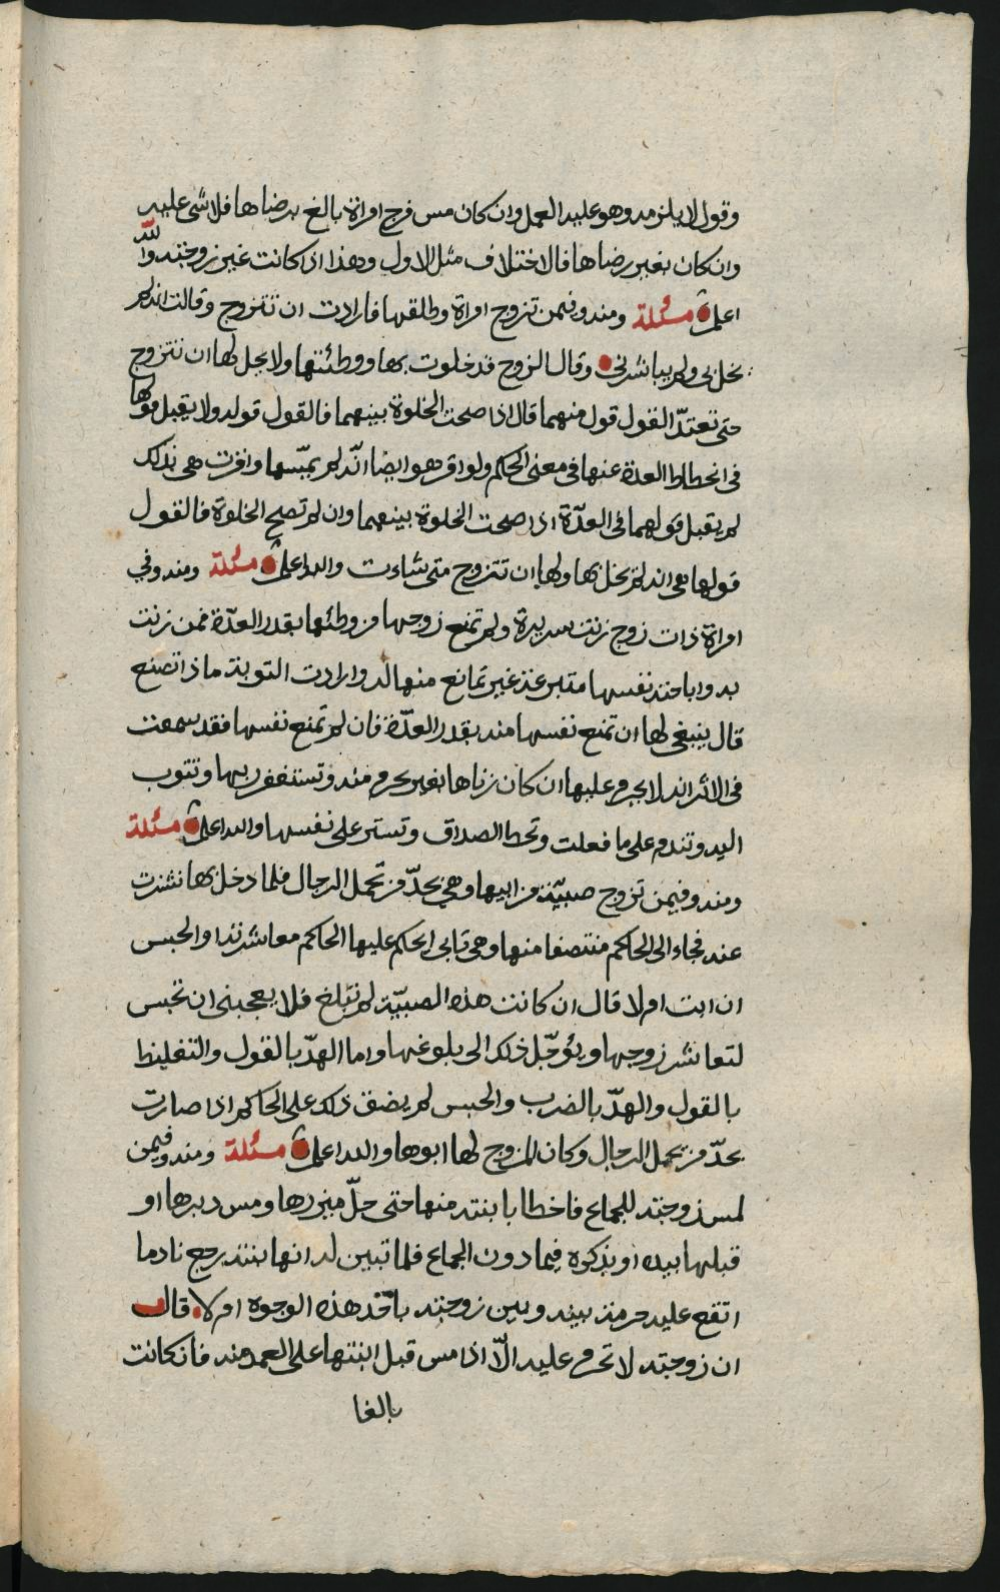 وقول لا يلزمه وهو عليه العمل وان كان مس فرج امراة بالغ برضاها فلا شي عليه
وان كان بغير رضاها فالاختلاف مثل الاول وهذا اذا كانت غير زوجته والله
اعلم مسئلة ومنه وفيمن تزوج امراة وطلقها فارادت ان تتزوج وقالت انه لم
يخل بي ولم يباشرني وقال الزوج قد خلوت بها ووطئتها ولا يحل لها ان تتزوج
حتى تعتدّ القول قول منهما قال اذا صحت الخلوة بينهما فالقول قوله ولا يقبل قولها
في انحطاط العدة عنها في معنى الحكم ولو اقر هو ايضا انّه لم يمسّها واقرت هي بذلك
لم يقبل قولهما في العدّة اذا صحت الخلوة بينهما وان لم تصح الخلوة فالقول
قولها هي انه لم يخل بها ولها ان تتزوج متى شاءت والله اعلم مسئلة ومنه وفي
امراة ذات زوج زنت سريرة ولم تمنع زوجها من وطئها بقدر العدّة ممن زنت
به واباحته نفسها متبرعة غير تمانع منها له وارادت التوبة ماذا تصنع
قال ينبغي لها ان تمنع نفسها منه بقدر العدّة فان لم تمنع نفسها فقد سمعت
في الاثر انه لا يحرم عليها ان كان زناها بغير محرم منه وتستغفر ربها وتتوب
اليه وتندم على ما فعلت وتحط الصداق وتستر على نفسها والله اعلم مسئلة
ومنه وفيمن تزوج صبيّة من ابيها وهي بحدّ من تحمل الرجال فلما دخل بها نشزت
عنه فجاء الى الحاكم منتصفا منها وهي تابى ايحكم عليها الحاكم معاشرته او الحبس
ان ابت ام لا قال ان كانت هذه الصبيّة لم تبلغ فلا يعجبني ان تحبس
لتعاشر زوجها ويؤجّل ذلك الى بلوغها واما الهدّ بالقول والتغليظ
بالقول والهدّ بالضرب والحبس لم يضق ذلك على الحاكم اذا صارت
بحدّ من يحمل الرجال وكان المزوج لها ابوها والله اعلم مسئلة ومنه وفيمن
لمس زوجته للجماع فاخطا بابنته منها حتى حلّ ميزرها ومس دبرها او
قبلها بيده او بذكره فيما دون الجماع فلما تبين له انها ابنته رجع نادما
اتقع عليه حرمة بينه وبين زوجته باحد هذه الوجوه ام لا قال
ان زوجته لا تحرم عليه الّا اذا مس قبل ابنتها على العمد منه فان كانت
بالغا